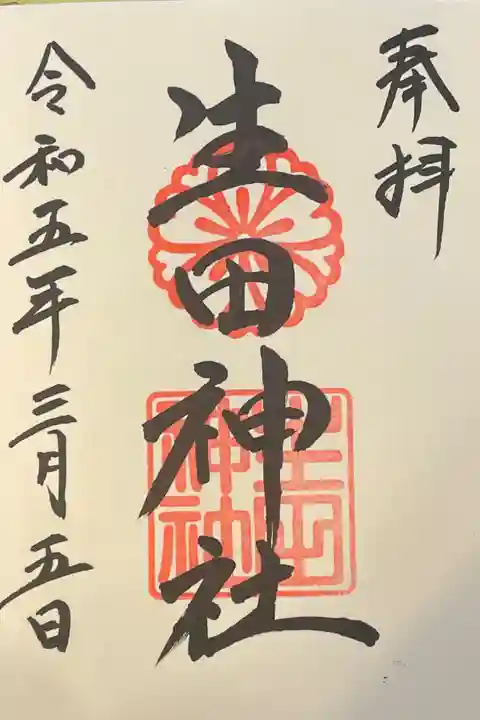 奉拝
生田神社
生田
神社
令和五年三月五日